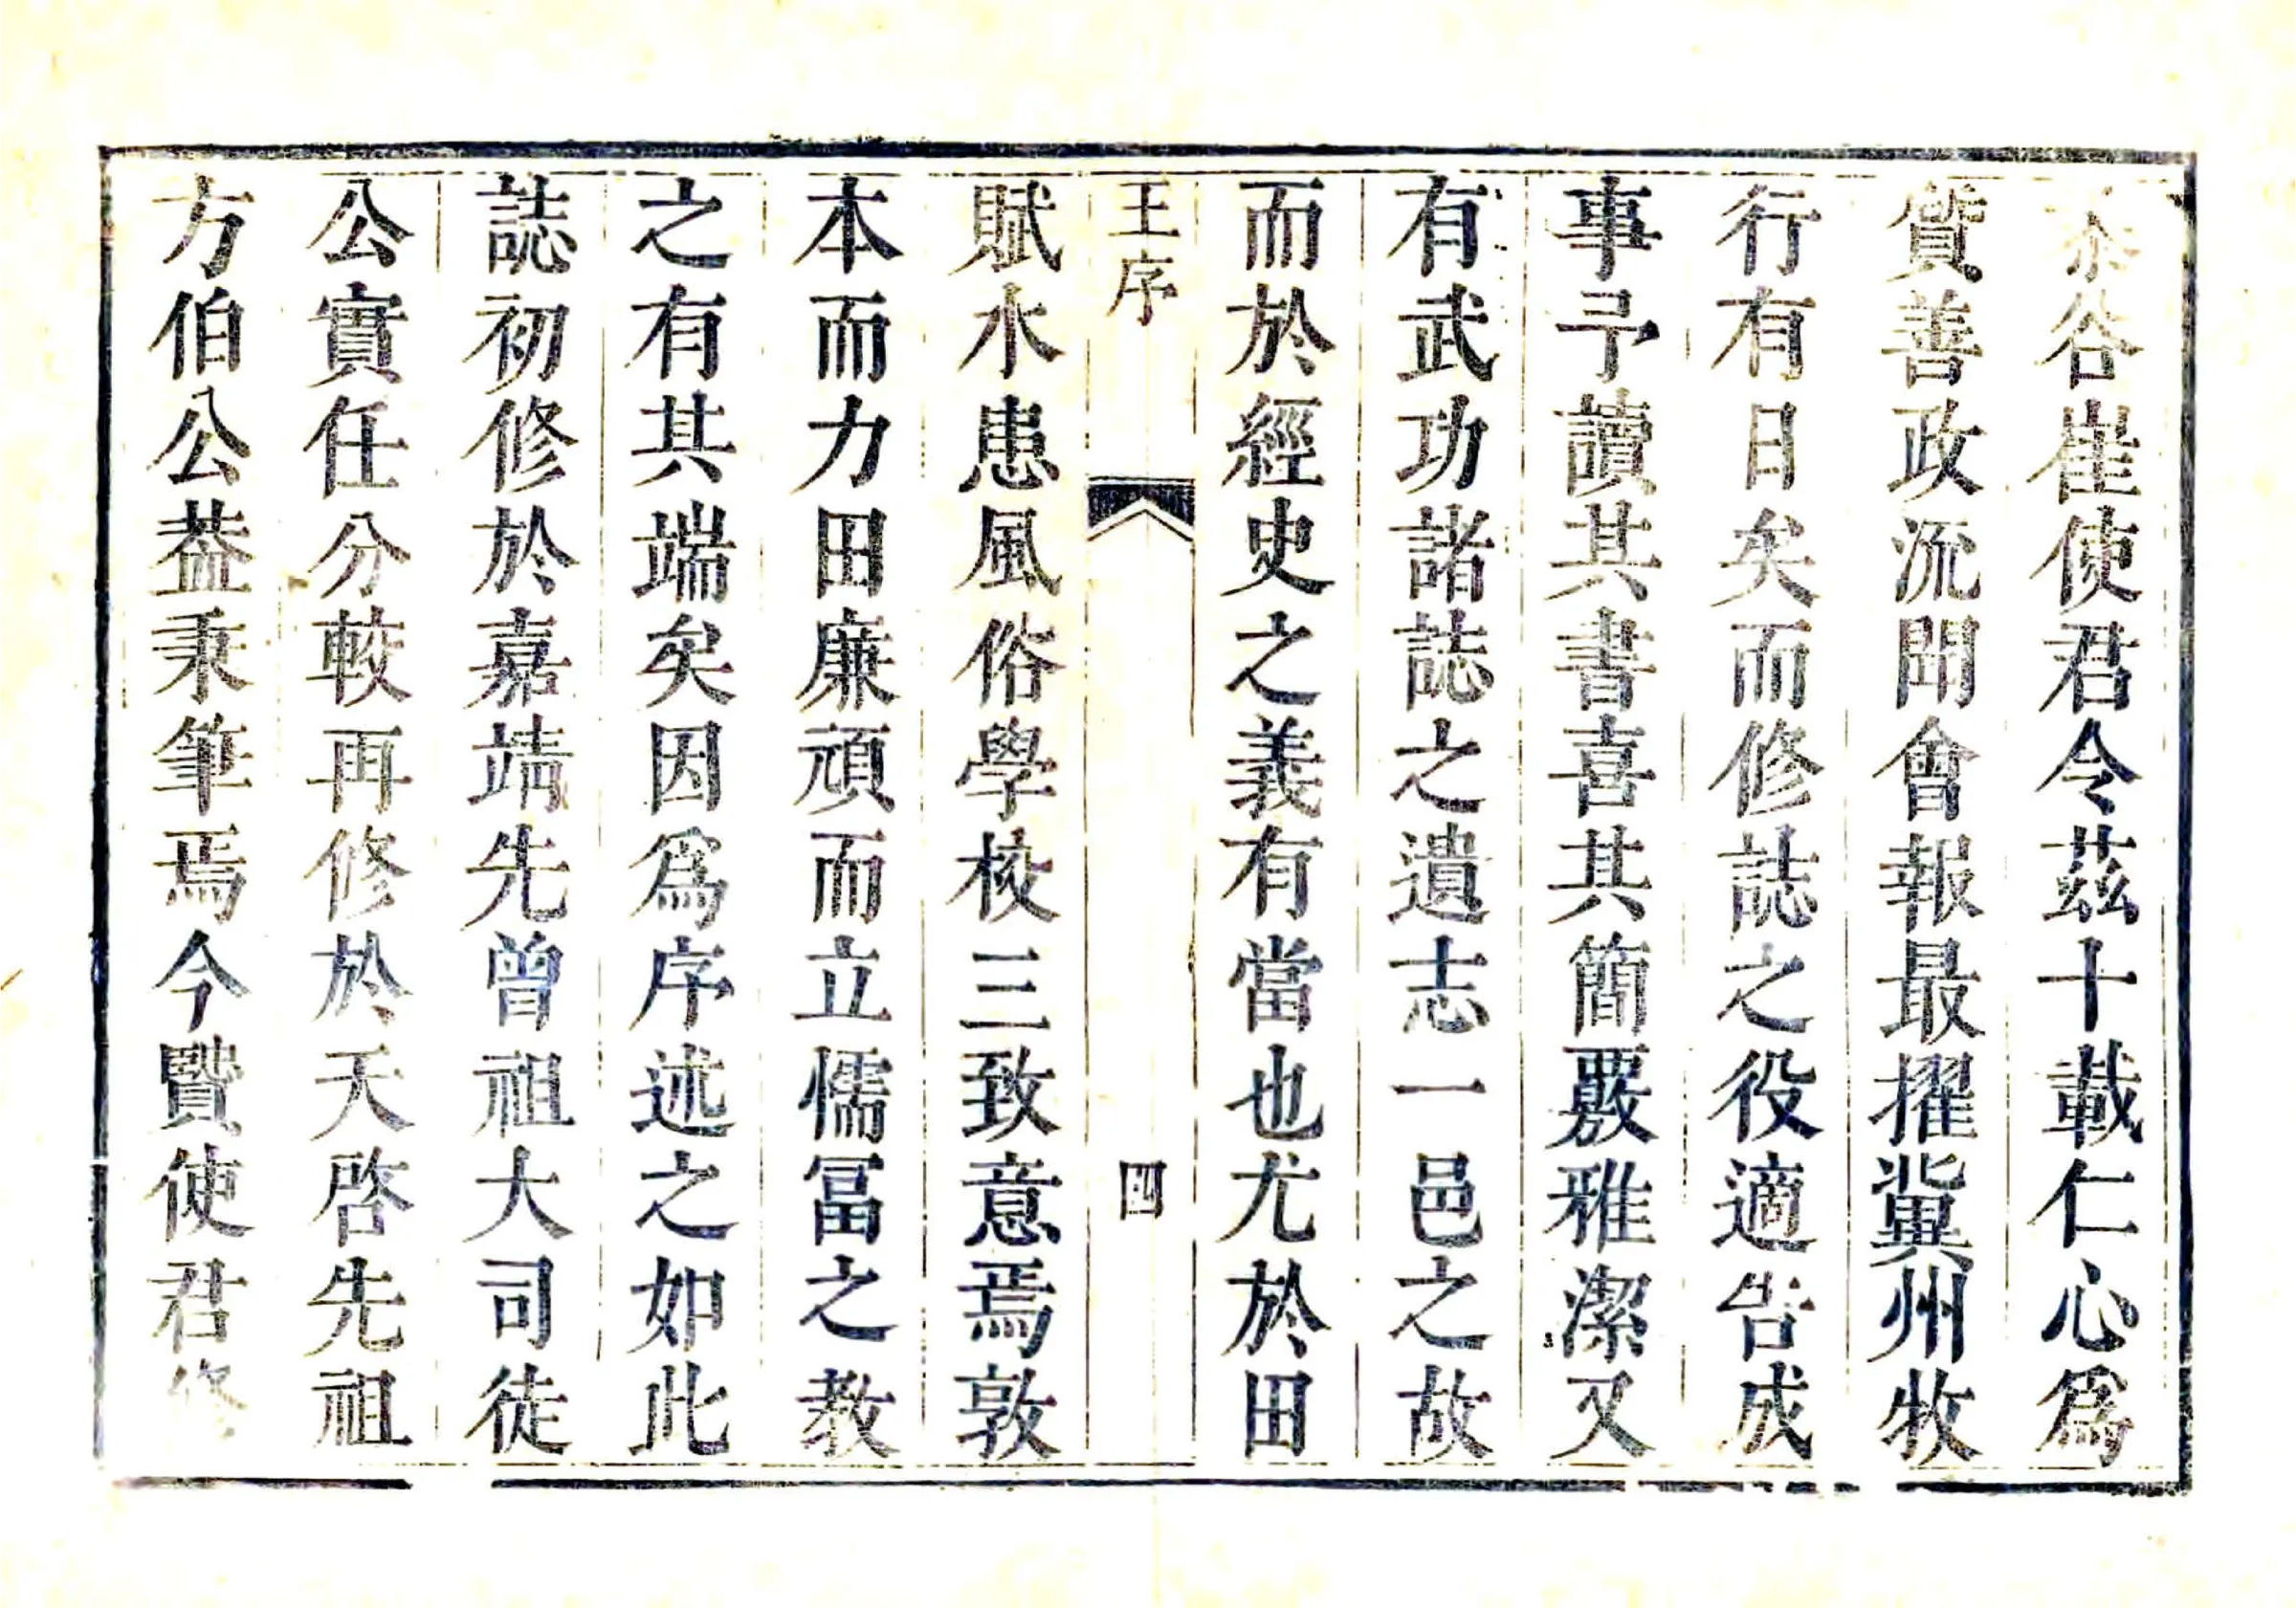 谷崔使君令茲十載仁心爲
質善政流聞會報最擢冀州牧
行有日矣而修誌之役適告成
事予讀其書喜其簡覈雅潔又
有武功諸誌之遺志一邑之故
而於經史之義有當也尤於田
王序 四
賦水患風俗學校三致意焉敦
本而力田廉頑而立懦冨之教
之有其端矣因爲序述之如此
誌初修於嘉靖先曾祖大司徒
公實任分較再修於天啓先祖
方伯公葢秉筆焉今賢使君修